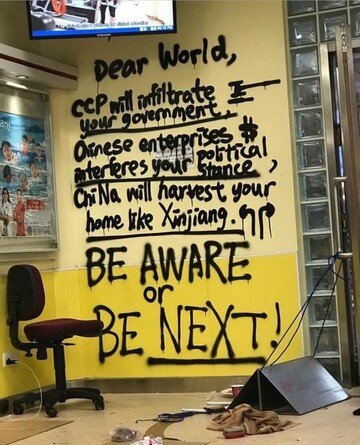 Dear World,
CCP will infiltrate
your government,
Chinese enterprises $
interferes your political
stance,
ChiNa will harvest your
home like Xinjiang.
BE AWARE
or
BE NEXT!